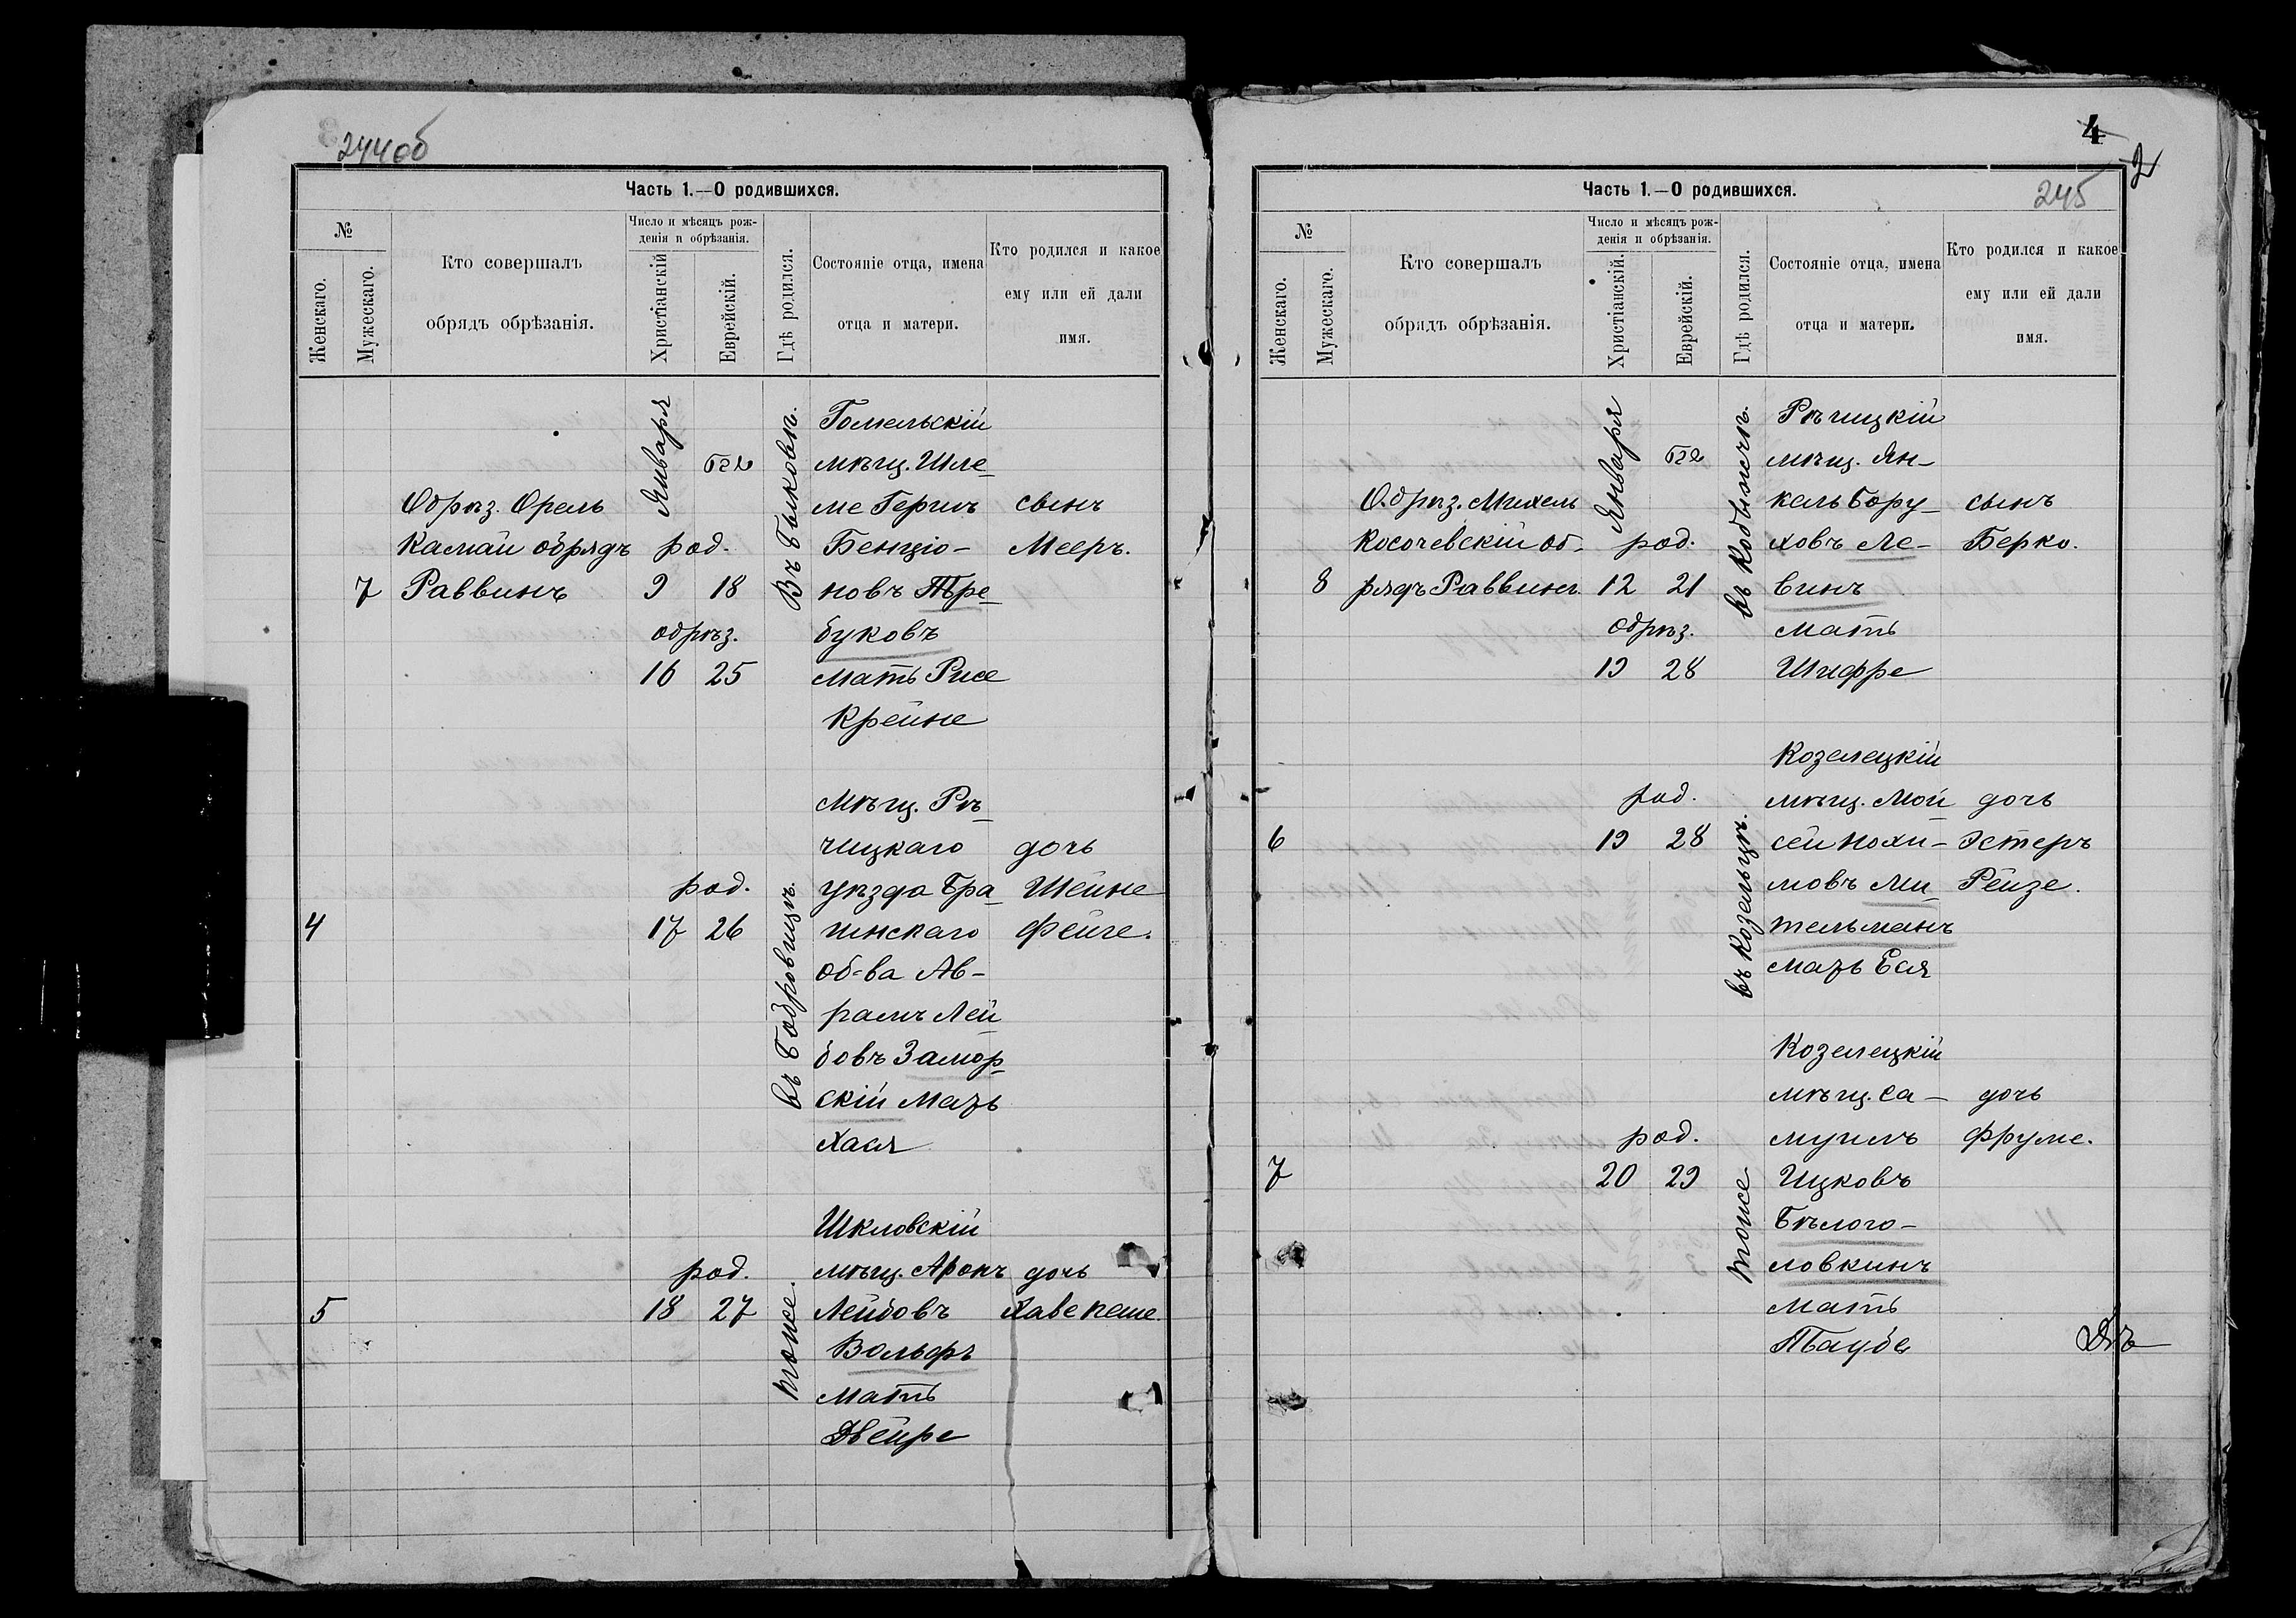 244об
Часть 1.—О родившихся.
№
Женскаго.
Мужескаго.
Кто совершалъ
обрядъ обрѣзанія.
Число и мѣсяцъ рож-
денія и обрѣзанія.
Христіанскій
Еврейскій.
Гдѣ родился.
Состояніе отца, имена
отца и матери.
Кто родился и какое
ему или ей дали
имя.
7
Обрѣз. Орель
Камай обрядъ
Раввинъ
Января
род.
9 18
обрѣз.
16 25
Въ Быковѣ.
Гомельскій
мѣщ. Шле-
ме Гершъ
Бенціо-
новъ Тре-
буковъ
мать Рисе
Крейне
сынъ
Мееръ.
4
род.
17 26
въ Бобровицѣ.
мѣщ. Рѣ-
чицкаго
уѣзда Бра-
гинскаго
об-ва Ав-
рамъ Лей-
бовъ Замор-
скій мать
Хася
дочь
Шейне
Фейге.
5
род.
18 27
тоже.
Шкловскій
мѣщ. Аронъ
Лейбовъ
Вольфъ
мать
Двейре
дочь
Хаве Пеше.
4
2
245
Часть 1.—О родившихся.
№
Женскаго.
Мужескаго.
Кто совершалъ
обрядъ обрѣзанія.
Число и мѣсяцъ рож-
денія и обрѣзанія.
Христіанскій.
Еврейскій.
Гдѣ родился.
Состояніе отца, имена
отца и матери.
Кто родился и какое
ему или ей дали
имя.
8
Обрѣз. Михель
Косочевскій об-
рядъ Раввинъ.
Января
род.
12 21
обрѣз.
19 28
Рѣчицкій
мѣщ. Ян-
кель Бору-
ховъ Ле-
винъ
мать
Шифре
сынъ
Берко.
6
род.
19 28
въ Козельцѣ.
Козелецкій
мѣщ. Мой-
сей Нохи-
мовъ Ми-
тельманъ
мать Еся
дочь
Эстеръ
Рейзе.
7
род.
20 29
тоже
Козелецкій
мѣщ. Са-
муилъ
Ицковъ
Бѣлого-
ловкинъ
мать
Таубе
дочь
Фруме.